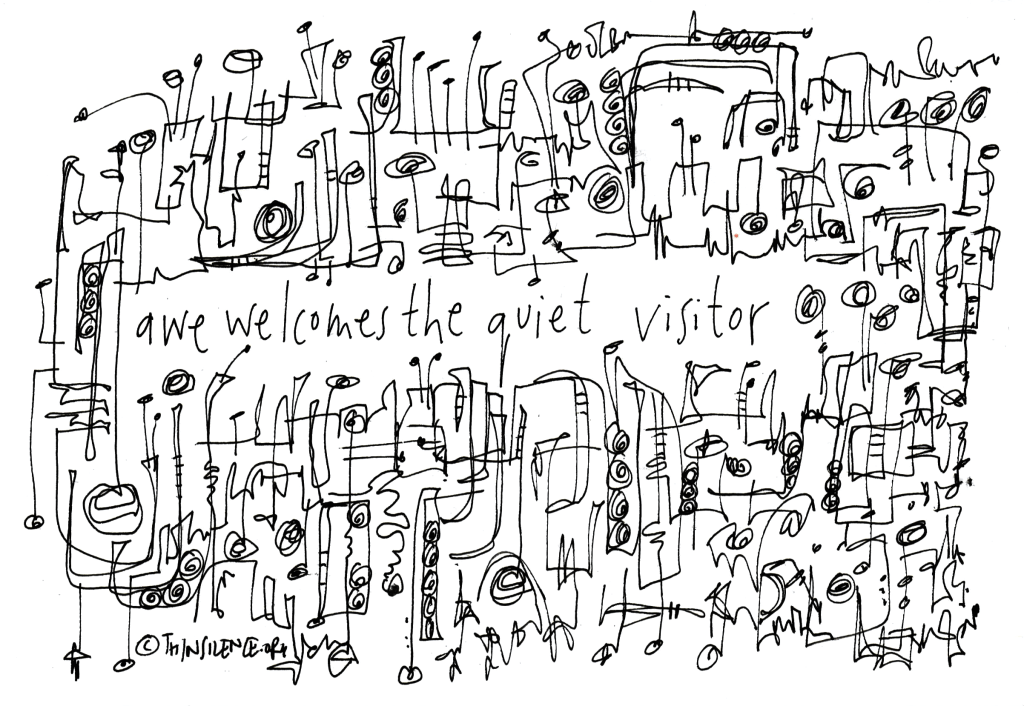 awe welcomes the quiet visitor
© THINSILENCE.ORG